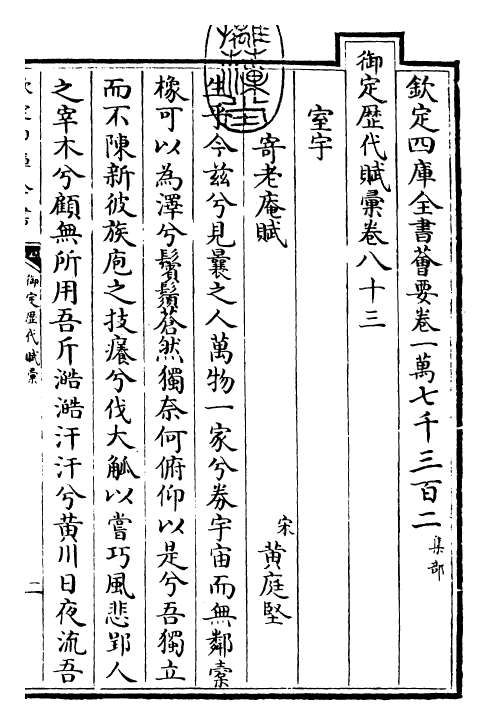 欽定四庫全書薈要卷一萬七千三百二 集部
御定歴代賦彙卷八十三
室宇
寄老庵賦
宋 黄庭堅
生乎今兹兮見曩之人萬物一家兮券宇宙而無鄰槖
橡可以為澤兮鬢鬚蒼然獨奈何俯仰以是兮吾獨立
而不陳新彼族庖之技癢兮伐大觚以嘗巧風悲郢人
之宰木兮顧無所用吾斤澔澔汗汗兮黄川日夜流吾
御定歴代賦彙